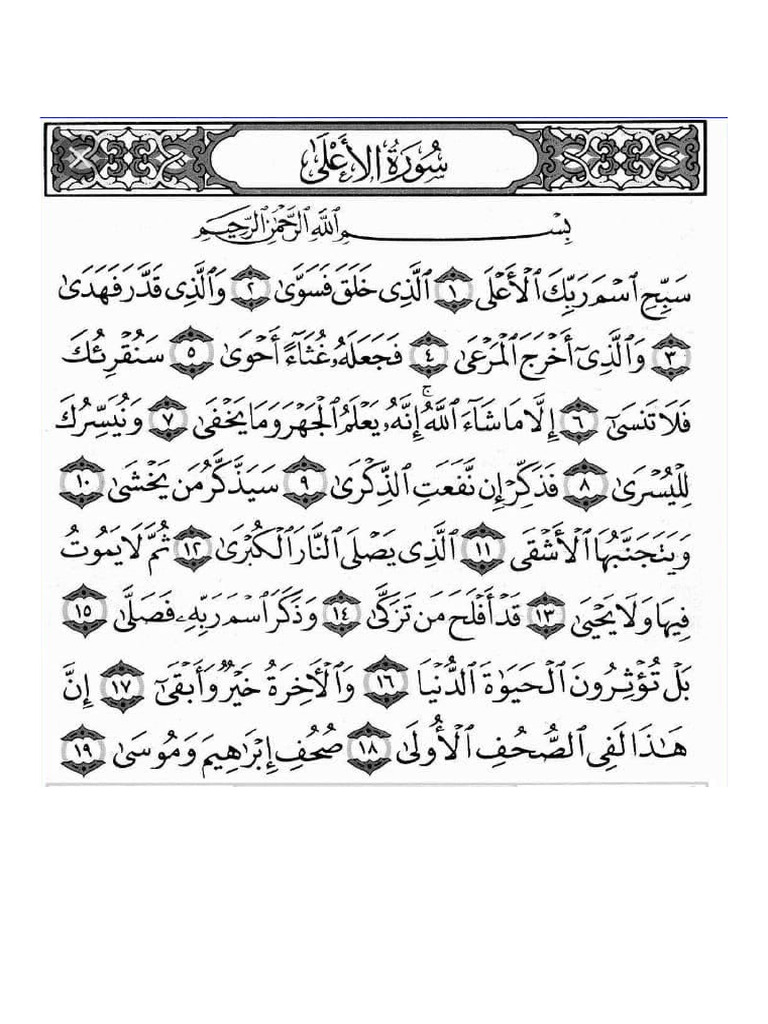 سُورَةُ الأَعْلَىٰ
بِسْمِ ٱللَّهِ ٱلرَّحْمَٰنِ ٱلرَّحِيمِ
سَبِّحِ ٱسْمَ رَبِّكَ ٱلْأَعْلَى ١ ٱلَّذِى خَلَقَ فَسَوَّىٰ ٢ وَٱلَّذِى قَدَّرَ فَهَدَىٰ
٣ وَٱلَّذِىٓ أَخْرَجَ ٱلْمَرْعَىٰ ٤ فَجَعَلَهُۥ غُثَآءً أَحْوَىٰ ٥ سَنُقْرِئُكَ
فَلَا تَنسَىٰٓ ٦ إِلَّا مَا شَآءَ ٱللَّهُ ۚ إِنَّهُۥ يَعْلَمُ ٱلْجَهْرَ وَمَا يَخْفَىٰ ٧ وَنُيَسِّرُكَ
لِلْيُسْرَىٰ ٨ فَذَكِّرْ إِن نَّفَعَتِ ٱلذِّكْرَىٰ ٩ سَيَذَّكَّرُ مَن يَخْشَىٰ ١٠
وَيَتَجَنَّبُهَا ٱلْأَشْقَى ١١ ٱلَّذِى يَصْلَى ٱلنَّارَ ٱلْكُبْرَىٰ ١٢ ثُمَّ لَا يَمُوتُ
فِيهَا وَلَا يَحْيَىٰ ١٣ قَدْ أَفْلَحَ مَن تَزَكَّىٰ ١٤ وَذَكَرَ ٱسْمَ رَبِّهِۦ فَصَلَّىٰ ١٥
بَلْ تُؤْثِرُونَ ٱلْحَيَوٰةَ ٱلدُّنْيَا ١٦ وَٱلْأَخِرَةُ خَيْرٌ وَأَبْقَىٰٓ ١٧ إِنَّ
هَٰذَا لَفِى ٱلصُّحُفِ ٱلْأُولَىٰ ١٨ صُحُفِ إِبْرَٰهِيمَ وَمُوسَىٰ ١٩